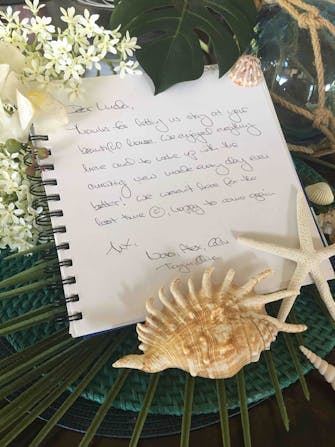 Dear Linda,
Thanks for letting us stay at your
beautiful house. We enjoyed everything
here and to wake up with this
amazing view made every day even
better! We weren't here for the
last time ☺, happy to come again
Love, Alex,